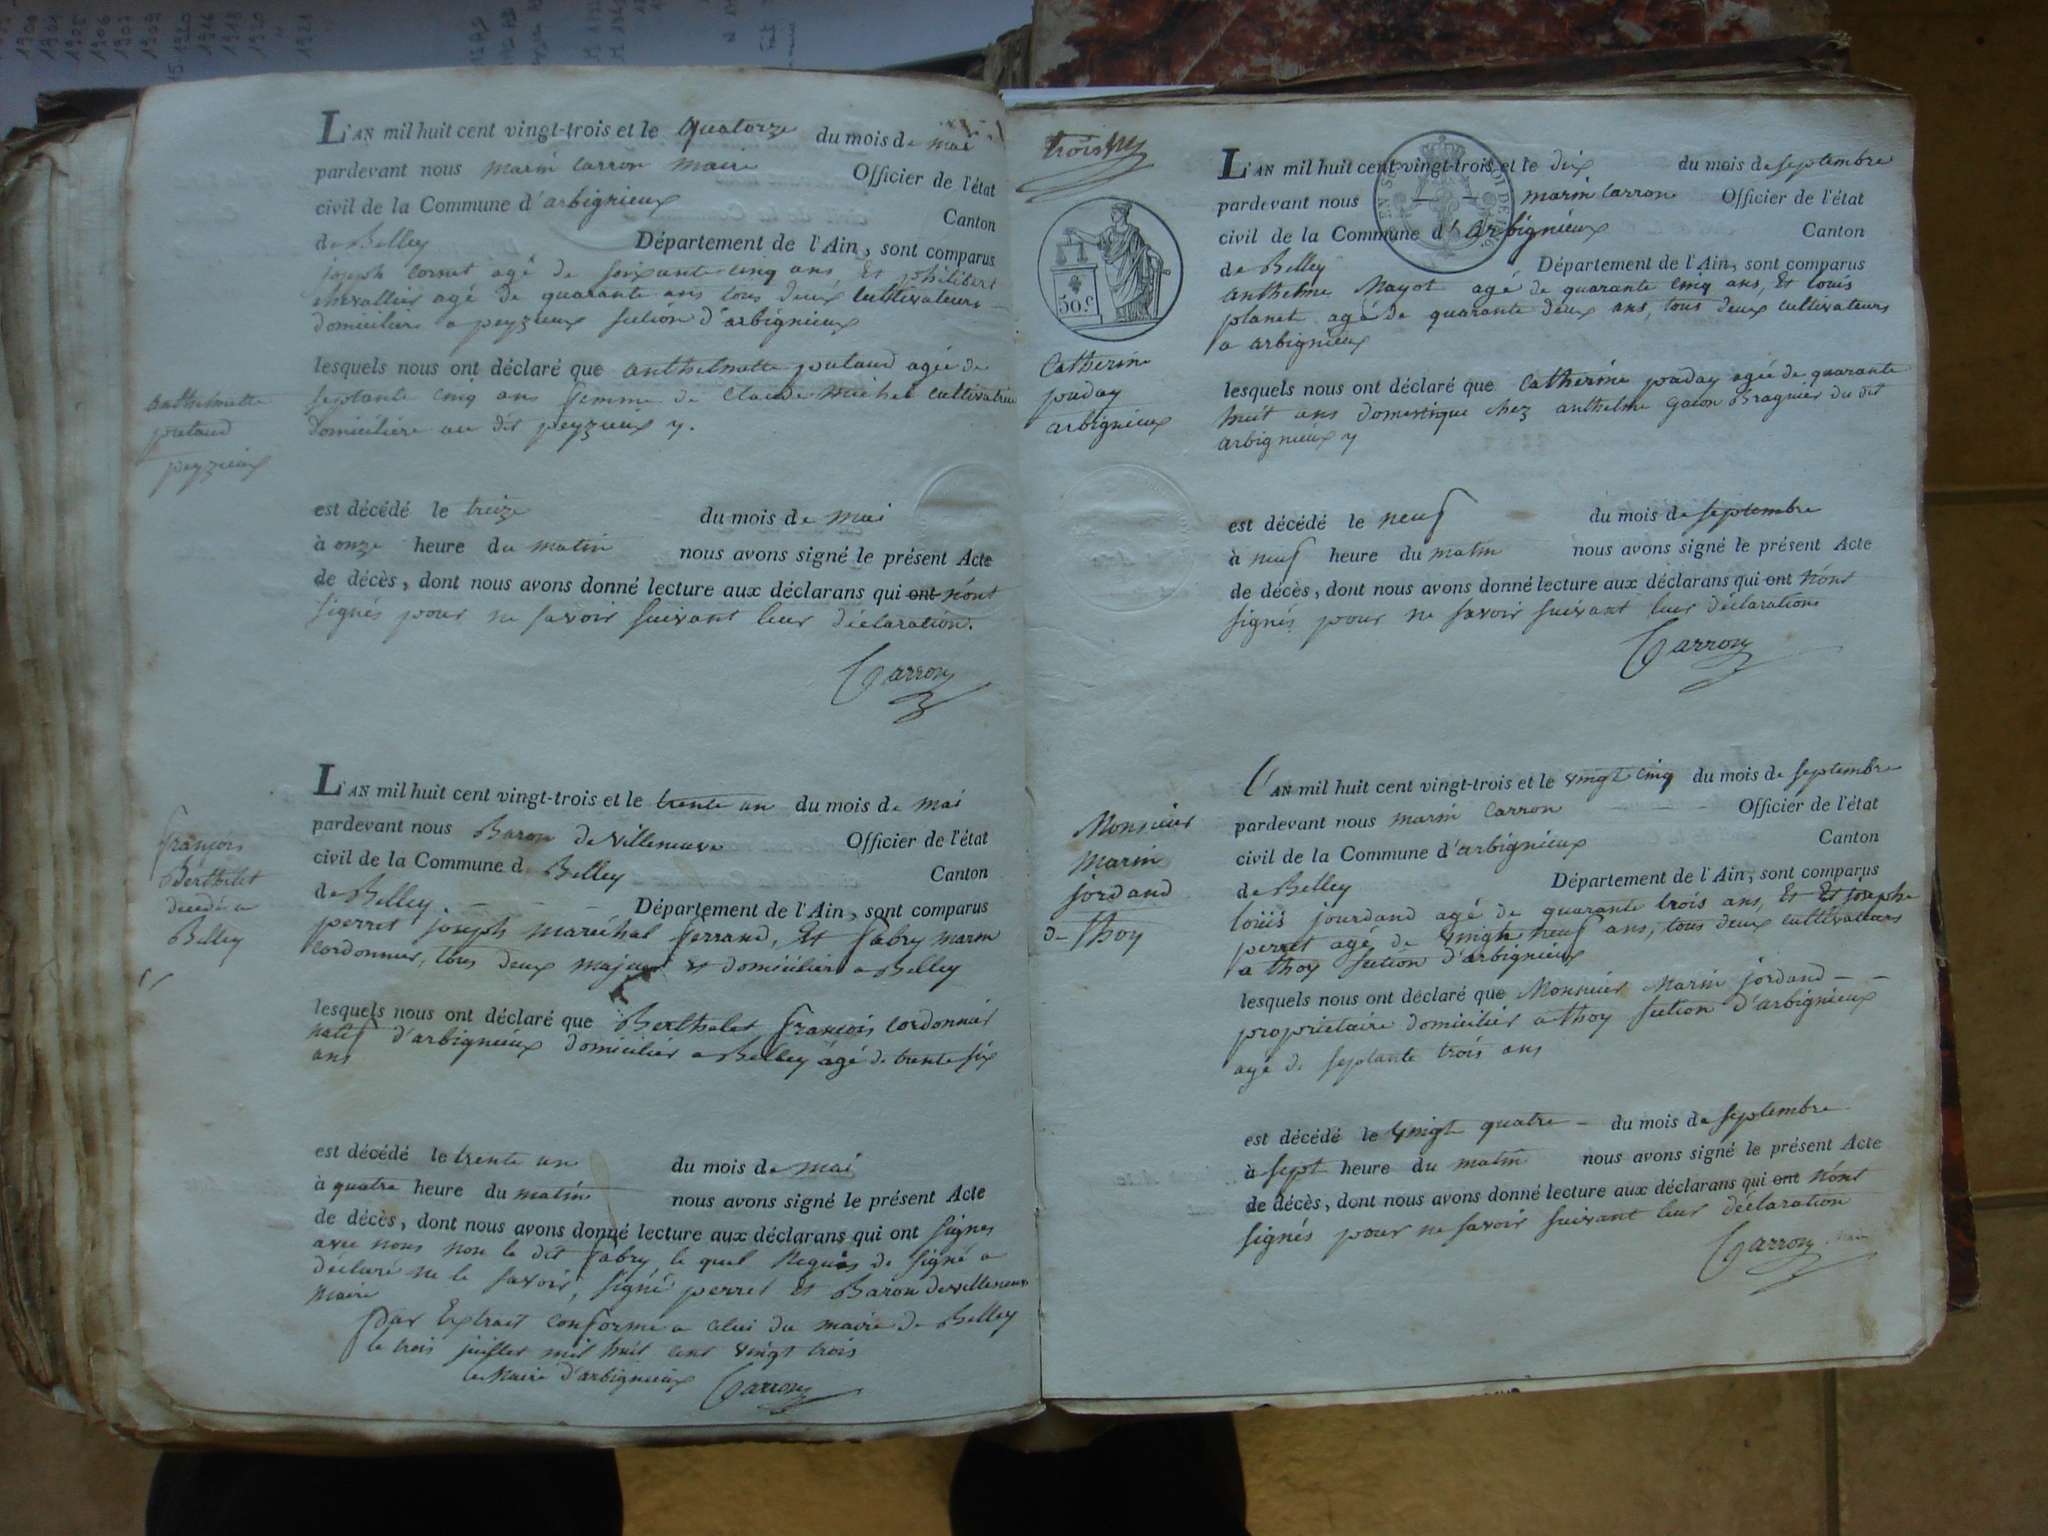 L'AN mil huit cent vingt-trois et le quatorze du mois de mai
pardevant nous marin Carron maire Officier de l'état
civil de la Commune d'arbignieux Canton
de Belley Département de l'Ain, sont comparus
joseph Cornet agé de soixante cinq ans Et philibert
chevallier agé de quarante ans tous deux Cultivateurs
domiciliés a peyzieux section d'arbignieux
lesquels nous ont déclaré que anthelmette putaud agée de
septante cinq ans femme de Claude michel cultivatrice
domicilière au dit peyzieux y.
anthelmette
putaud
peyzieux
est décédé le treize du mois de mai
à onze heure du matin nous avons signé le présent Acte
de décès, dont nous avons donné lecture aux déclarans qui ont n'ont
signés pour ne savoir suivant leur déclaration.
Carron
L'AN mil huit cent vingt-trois et le trente un du mois de mai
pardevant nous Baron de Villeneuve Officier de l'état
civil de la Commune de Belley Canton
de Belley. Département de l'Ain, sont comparus
perret joseph maréchal ferrand, Et fabry marin
Cordonnier, tous deux majeurs & domiciliés a Belley
françois
Berthelet
décédé a
Belley
lesquels nous ont déclaré que Berthelet françois Cordonnier
natif d'arbignieux domicilié a Belley âgé de trente six
ans
est décédé le trente un du mois de mai
à quatre heure du matin nous avons signé le présent Acte
de décès, dont nous avons donné lecture aux déclarans qui ont signés
avec nous non le dit fabry le quel Requis de signé a
déclaré ne le savoir, signé perret et Baron devilleneuve
Maire
Par Extrait conforme a celui du maire de Belley
le trois juillet mil huit cent vingt trois
le Maire d'arbignieux Carron
trois
L'AN mil huit cent vingt-trois et le dix du mois de septembre
pardevant nous marin Carron Officier de l'état
civil de la Commune d'arbignieux Canton
de Belley Département de l'Ain, sont comparus
50.c
anthelme Mayot agé de quarante cinq ans, Et louis
planet agé de quarante deux ans, tous deux cultivateurs
a arbignieux
Catherine
paday
arbignieux
lesquels nous ont déclaré que Catherine paday agée de quarante
huit ans domestique chez anthelme Gacon Bragnier du dit
arbignieux y
est décédé le neuf du mois de septembre
à neuf heure du matin nous avons signé le présent Acte
de décès, dont nous avons donné lecture aux déclarans qui ont n'ont
signés pour ne savoir suivant leur déclaration
Carron
L'AN mil huit cent vingt-trois et le vingt cinq du mois de septembre
pardevant nous marin Carron Officier de l'état
civil de la Commune d'arbignieux Canton
de Belley Département de l'Ain, sont comparus
louis jourdand agé de quarante trois ans, Et Et josephe
perret agé de vingt neuf ans, tous deux cultivateurs
a thoy section d'arbignieux
Monsieur
Marin
jordand
de thoy
lesquels nous ont déclaré que Monsieur Marin jordand
proprietaire domicilié a thoy section d'arbignieux
agé de septante trois ans
est décédé le vingt quatre du mois de septembre
à sept heure du matin nous avons signé le présent Acte
de décès, dont nous avons donné lecture aux déclarans qui ont n'ont
signés pour ne savoir suivant leur déclaration
Carron